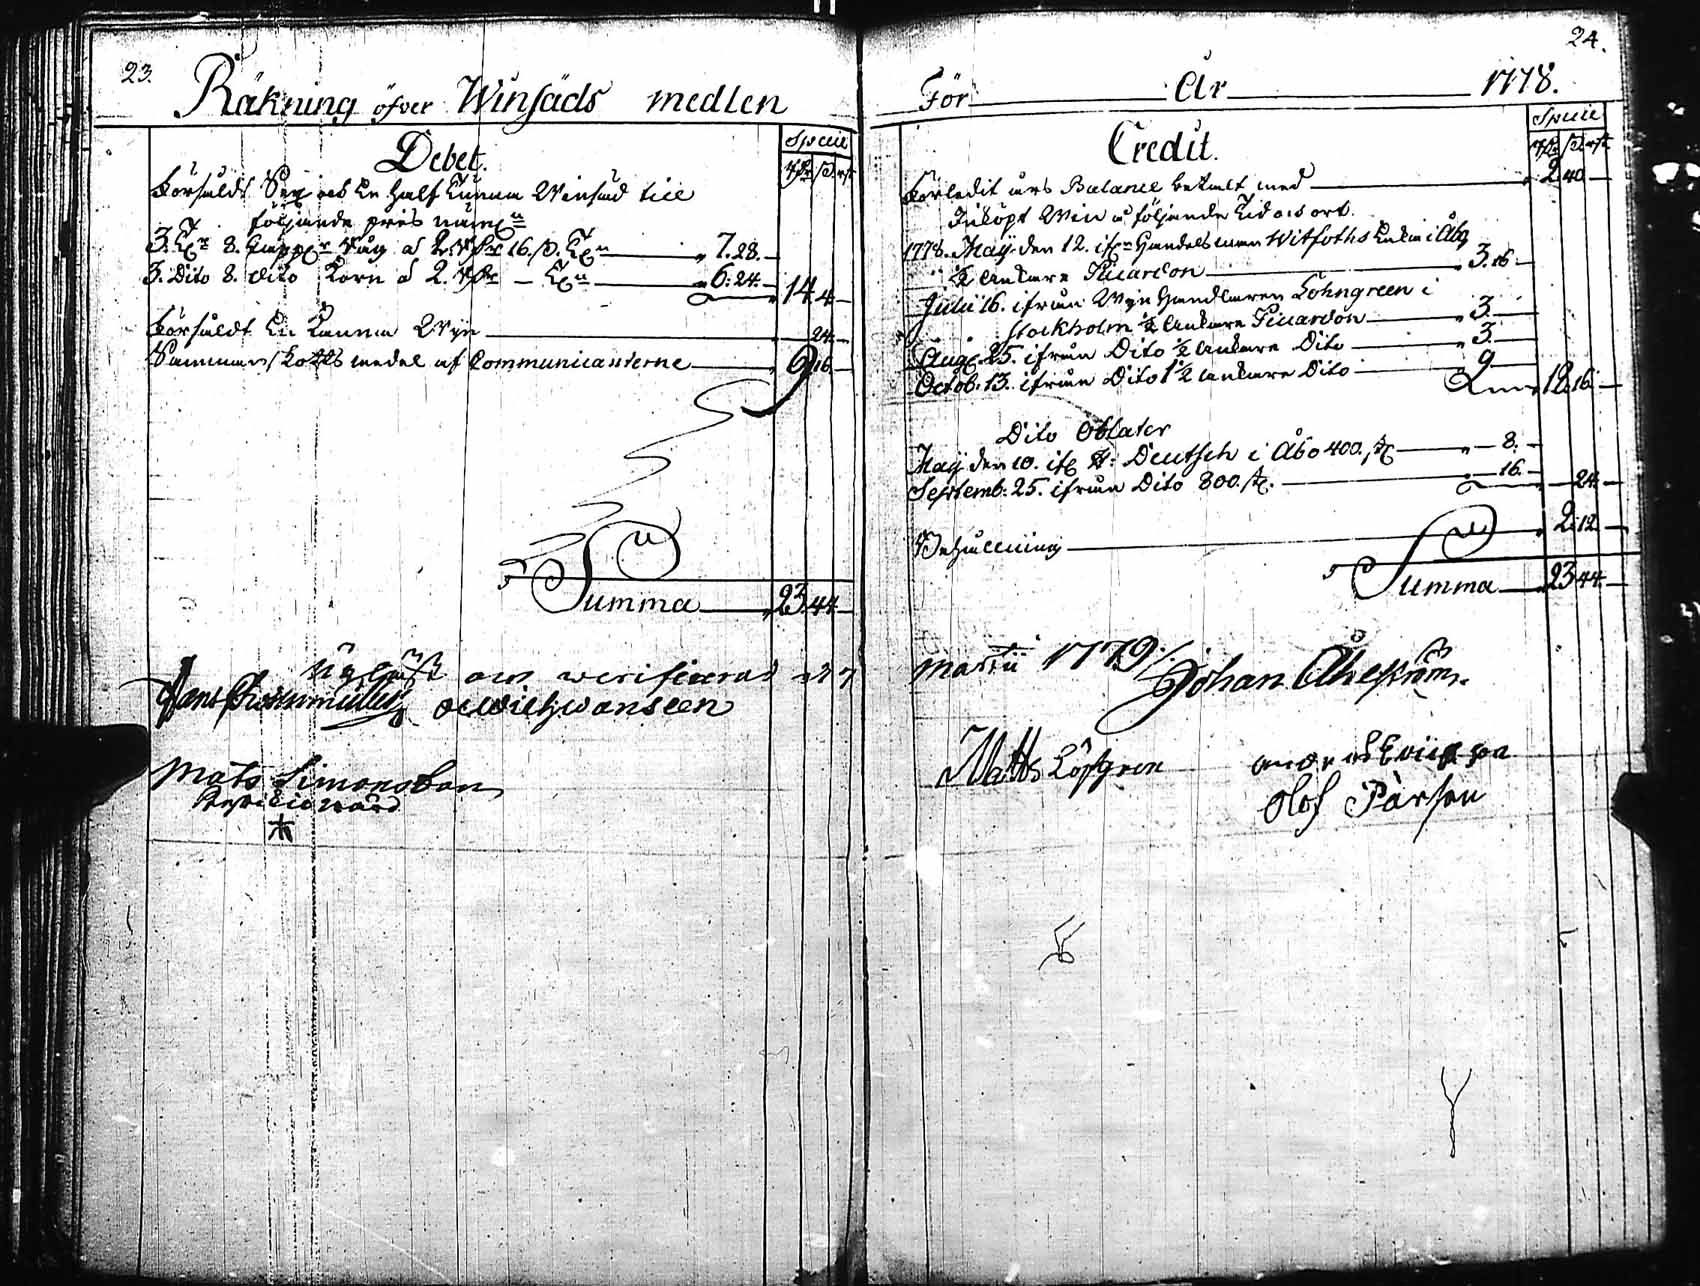 23.
Räkning öfver Winsäds medlen
Debet.
Specie
Försåldt Sex och En half Tunna Winsäd till
följande pris nämln
3. Tr 8. Kappr Råg à 2. Rdr 16. s. Tn 7. 28.
3. Dito 8. dito Korn à 2. Rdr Tn 6: 24. 14 4
Försåldt En Kanna Wyn 24
Sammanskotts medel af Communicanterne 9 16
Summa 23. 44
och verificeras
Hans Rosenmüller
Mats Simonsson
24.
För År 1778.
Credit.
Specie
Förledit års Balance betalt med 2 40
Inköpt Win på följande Tid och ort.
1778. Maji den 12. ifrn Handelsman Witfoths Enka i Åbo
½ Ankare Picardon 3. 16
Julii 16. ifrån Wyn Handlaren Lohngreen i
Stockholm ½ Ankare Picardon 3.
Aug. 25. ifrån Dito ½ Ankare Dito 3.
Octob. 13. ifrån Dito 1½ ankare Dito 9 18 16
Dito Oblater
Maji den 10. Deutsch i Åbo 400. st 8.
Septemb: 25. ifrån Dito 800. st. 16. 24
Behållning 2 12
Summa 23 44
Martii 1779.
Johan Åhlström
Matts Löfgren
Olof Pärson